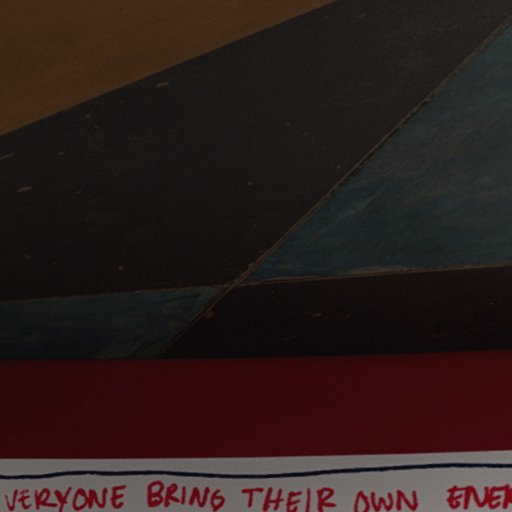 VERYONE BRING THEIR OWN ENE